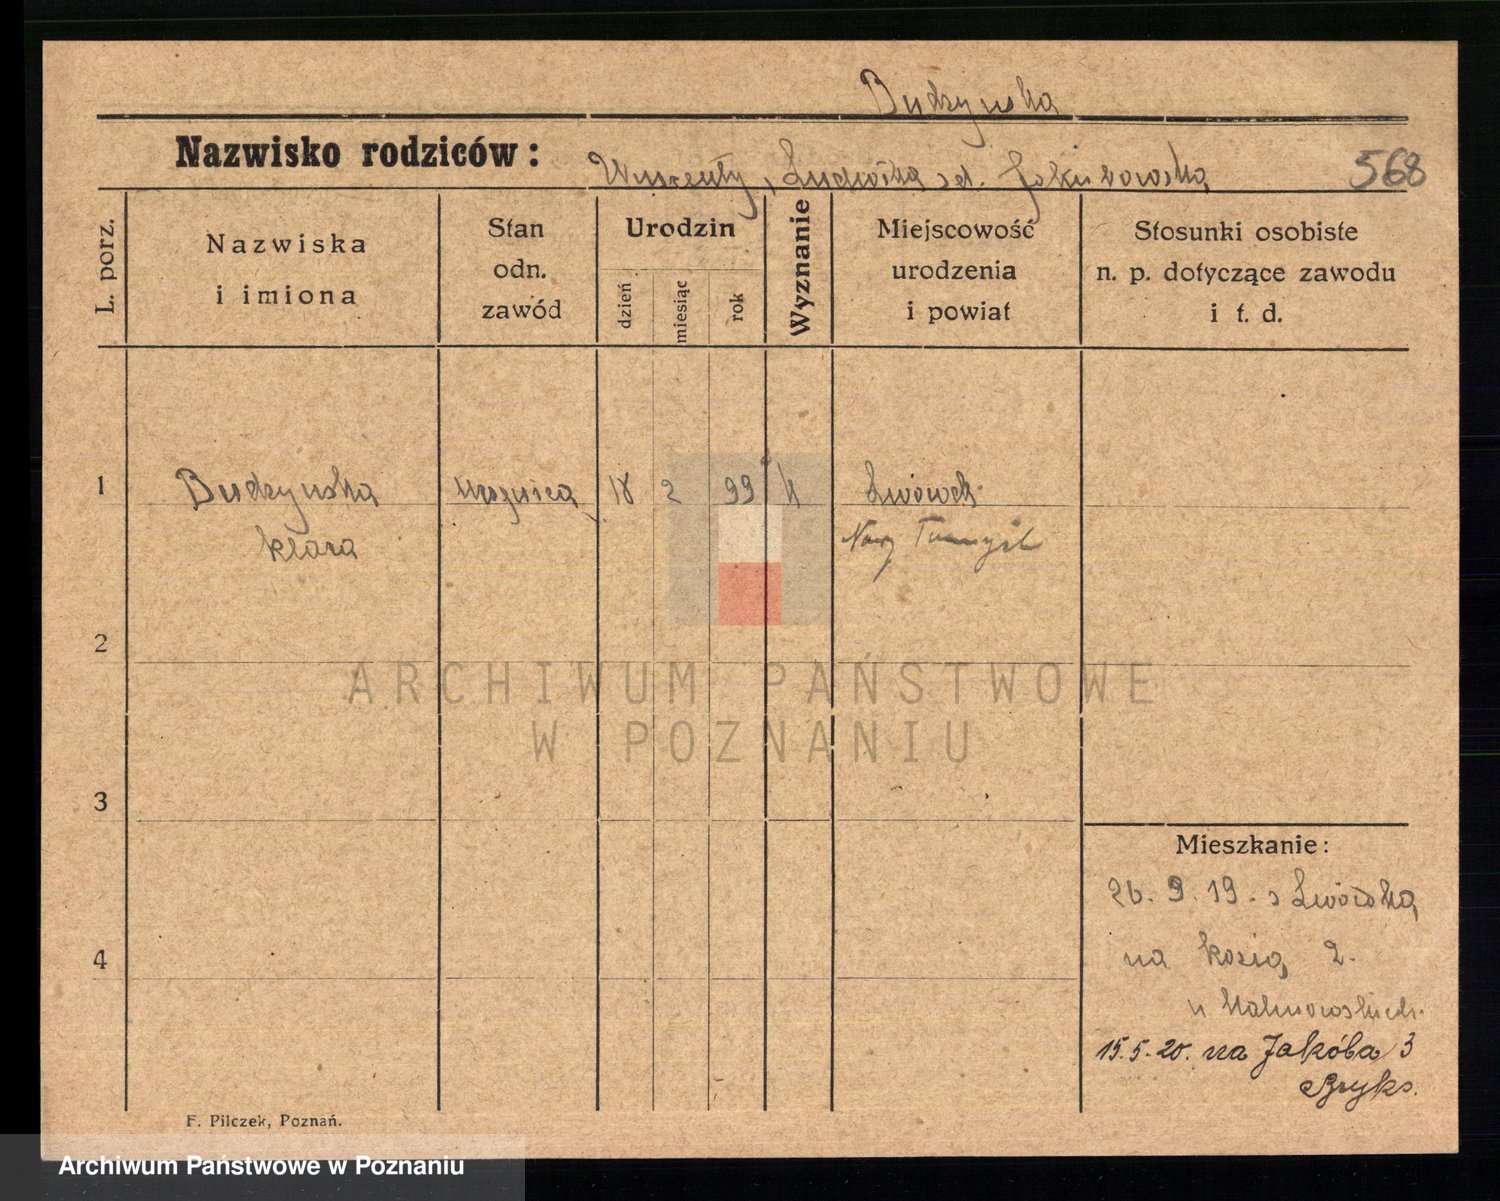 Budzynska
Nazwisko rodziców:
Wincenty, Ludwika zd. Jakubowska
568
L. porz.
Nazwiska
i imiona
Stan
odn.
zawód
Urodzin
dzień
miesiąc
rok
Wyznanie
Miejscowość
urodzenia
i powiat
Stosunki osobiste
n. p. dotyczące zawodu
i t. d.
1
Budzynska
18 2 99 k
Lwówek
Klara
Nowy Tomyśl
2
ARCHIWUM PAŃSTWOWE
W POZNANIU
3
Mieszkanie:
26. 9. 19. z Lwówka
na Kozią 2.
4
u Malinowskich.
15.5.20. na Jakóba 3
Bryks.
F. Pilczek, Poznań.
Archiwum Państwowe w Poznaniu